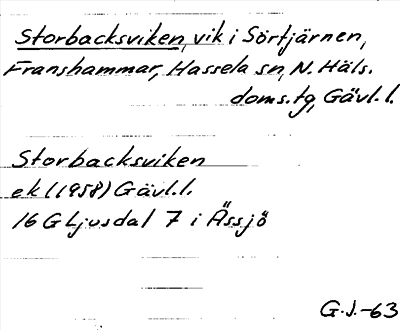 Storbacksviken, vik i Sörtjärnen,
Franshammar, Hassela sn, N. Häls.
doms.tg, Gävl. l.
Storbacksviken
ek (1958) Gävl. l.
16 G Ljusdal 7 i Ässjö
G.J.-63